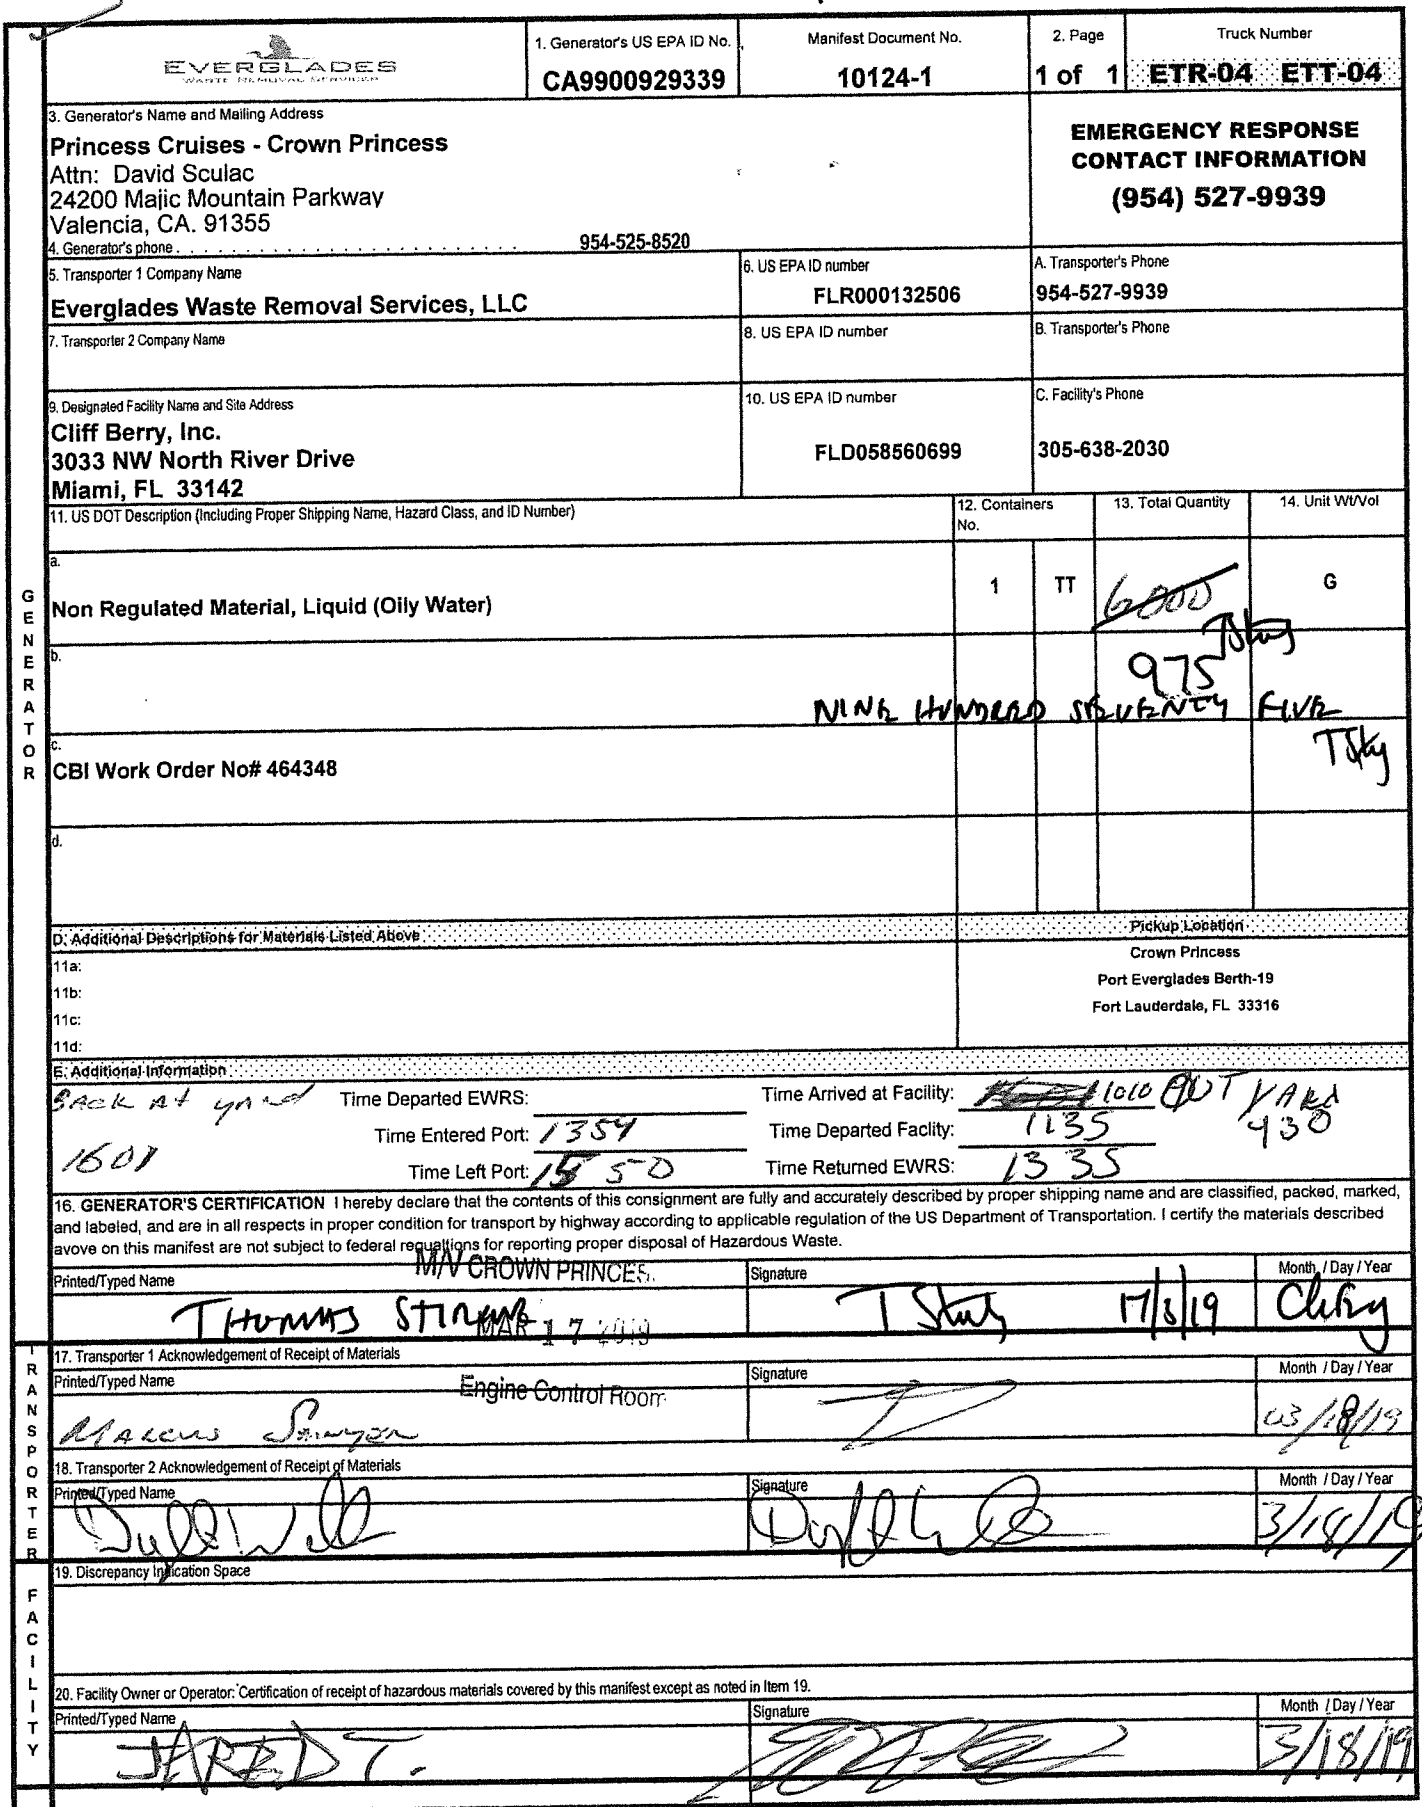 EVERGLADES
WASTE REMOVAL SERVICES
1. Generator's US EPA ID No.
CA9900929339
Manifest Document No.
10124-1
2. Page
1 of 1
Truck Number
ETR-04 ETT-04
3. Generator's Name and Mailing Address
Princess Cruises - Crown Princess
Attn: David Sculac
24200 Majic Mountain Parkway
Valencia, CA. 91355
4. Generator's phone . . . . . . . . . . . . . . . . . . . . . . 954-525-8520
EMERGENCY RESPONSE
CONTACT INFORMATION
(954) 527-9939
5. Transporter 1 Company Name
Everglades Waste Removal Services, LLC
6. US EPA ID number
FLR000132506
A. Transporter's Phone
954-527-9939
7. Transporter 2 Company Name
8. US EPA ID number
B. Transporter's Phone
9. Designated Facility Name and Site Address
Cliff Berry, Inc.
3033 NW North River Drive
Miami, FL 33142
10. US EPA ID number
FLD058560699
C. Facility's Phone
305-638-2030
11. US DOT Description (Including Proper Shipping Name, Hazard Class, and ID Number)
12. Containers
No.
13. Total Quantity
14. Unit Wt/Vol
GENERATOR
a.
Non Regulated Material, Liquid (Oily Water)
1 TT 6000 G
b.
975
NINE HUNDRED SEVENTY FIVE
c.
CBI Work Order No# 464348
d.
D. Additional Descriptions for Materials Listed Above
11a:
11b:
11c:
11d:
Pickup Location
Crown Princess
Port Everglades Berth-19
Fort Lauderdale, FL 33316
E. Additional Information
BACK AT yard
1601
Time Departed EWRS:
Time Entered Port: 1354
Time Left Port: 1550
Time Arrived at Facility: 1010 OUT YARD
Time Departed Faclity: 1135 930
Time Returned EWRS: 1335
16. GENERATOR'S CERTIFICATION I hereby declare that the contents of this consignment are fully and accurately described by proper shipping name and are classified, packed, marked,
and labeled, and are in all respects in proper condition for transport by highway according to applicable regulation of the US Department of Transportation. I certify the materials described
avove on this manifest are not subject to federal requaltions for reporting proper disposal of Hazardous Waste.
Printed/Typed Name
M/V CROWN PRINCES.
THOMAS
MAR 17 2019
Signature
17/3/19
Month / Day / Year
TRANSPORTER
17. Transporter 1 Acknowledgement of Receipt of Materials
Printed/Typed Name
Engine Control Room
Marcus Sawyer
Signature
Month / Day / Year
03/18/19
18. Transporter 2 Acknowledgement of Receipt of Materials
Printed/Typed Name
Signature
Month / Day / Year
3/18/19
FACILITY
19. Discrepancy Indication Space
20. Facility Owner or Operator: Certification of receipt of hazardous materials covered by this manifest except as noted in Item 19.
Printed/Typed Name
JARED T.
Signature
Month / Day / Year
3/18/19